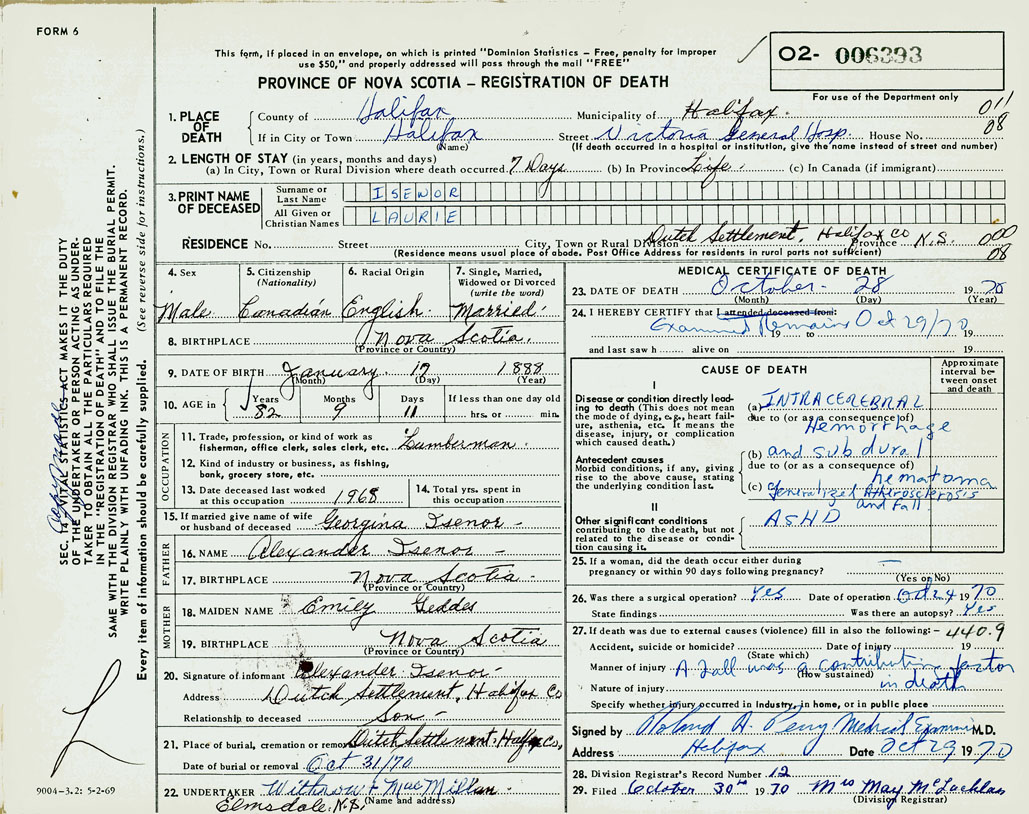 FORM 6
This form, if placed in an envelope, on which is printed "Dominion Statistics – Free, penalty for improper
use $50," and properly addressed will pass through the mail "FREE"
PROVINCE OF NOVA SCOTIA – REGISTRATION OF DEATH
O2- 006393
For use of the Department only
1. PLACE OF DEATH
County of Halifax Municipality of Halifax. 011
If in City or Town Halifax Street Victoria General Hosp. House No. 08
(Name) (If death occurred in a hospital or institution, give the name instead of street and number)
2. LENGTH OF STAY (in years, months and days)
(a) In City, Town or Rural Division where death occurred 7 Days (b) In Province Life. (c) In Canada (if immigrant)
3. PRINT NAME OF DECEASED
Surname or Last Name ISENOR
All Given or Christian Names LAURIE
RESIDENCE No. Street City, Town or Rural Division Dutch Settlement, Halifax Co Province N.S. 000
(Residence means usual place of abode. Post Office Address for residents in rural parts not sufficient) 08
4. Sex Male
5. Citizenship (Nationality) Canadian
6. Racial Origin English.
7. Single, Married, Widowed or Divorced (write the word) Married.
8. BIRTHPLACE Nova Scotia.
(Province or Country)
9. DATE OF BIRTH January 17 1888
(Month) (Day) (Year)
10. AGE in Years 82 Months 9 Days 11 If less than one day old hrs. or min.
OCCUPATION
11. Trade, profession, or kind of work as
fisherman, office clerk, sales clerk, etc. Lumberman.
12. Kind of industry or business, as fishing,
bank, grocery store, etc.
13. Date deceased last worked
at this occupation 1968
14. Total yrs. spent in
this occupation
15. If married give name of wife
or husband of deceased Georgina Isenor –
FATHER
16. NAME Alexander Isenor –
17. BIRTHPLACE Nova Scotia.
(Province or Country)
MOTHER
18. MAIDEN NAME Emily Geddes
19. BIRTHPLACE Nova Scotia
(Province or Country)
20. Signature of informant Alexander Isenor –
Address Dutch Settlement, Halifax Co
Relationship to deceased Son –
21. Place of burial, cremation or removal Dutch Settlement, Halifax Co,
Date of burial or removal Oct 31/70
22. UNDERTAKER Withrow & MacMillan.
(Name and address)
Elmsdale, N.S.
MEDICAL CERTIFICATE OF DEATH
23. DATE OF DEATH October 28 1970
(Month) (Day) (Year)
24. I HEREBY CERTIFY that I attended deceased from:
Examined Remains Oct 29/70
19 to 19
and last saw h alive on 19
CAUSE OF DEATH
Approximate interval between onset and death
I
Disease or condition directly leading to death (This does not mean the mode of dying, e.g., heart failure, asthenia, etc. It means the disease, injury, or complication which caused death.
(a) INTRACEREBRAL
due to (or as a consequence of)
Hemorrhage
Antecedent causes
Morbid conditions, if any, giving rise to the above cause, stating the underlying condition last.
(b) and subdural
due to (or as a consequence of)
hematoma
(c) Generalized Atherosclerosis
and fall
II
Other significant conditions
contributing to the death, but not related to the disease or condition causing it.
ASHD
25. If a woman, did the death occur either during
pregnancy or within 90 days following pregnancy? —
(Yes or No)
26. Was there a surgical operation? Yes Date of operation Oct 24 1970
State findings Was there an autopsy? Yes
27. If death was due to external causes (violence) fill in also the following: – 440.9
Accident, suicide or homicide? Date of injury 19
(State which)
Manner of injury A fall was a contributing factor
(How sustained)
Nature of injury in death
Specify whether injury occurred in industry, in home, or in public place
Signed by Roland A. Perry Medical Examiner M.D.
Address Halifax Date Oct 29 1970
28. Division Registrar's Record Number 12
29. Filed October 30th 1970 Mrs May McLachlan
(Division Registrar)
SEC. 14 VITAL STATISTICS ACT MAKES IT THE DUTY
OF THE UNDERTAKER OR PERSON ACTING AS UNDER-
TAKER TO OBTAIN ALL THE PARTICULARS REQUIRED
IN THE "REGISTRATION OF DEATH" AND TO FILE THE
SAME WITH THE DIVISION REGISTRAR WHO SHALL ISSUE THE BURIAL PERMIT.
WRITE PLAINLY WITH UNFADING INK. THIS IS A PERMANENT RECORD.
Every item of information should be carefully supplied. (See reverse side for instructions.)
9004–3.2: 5-2-69